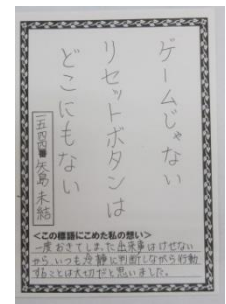 ゲームじゃない
リセットボタンは
どこにもない
矢島未結
<この標語にこめた私の想い>
一度おきてしまった出来事はけせない
から いつも冷静に判断しながら行動
することは大切だと思いました。